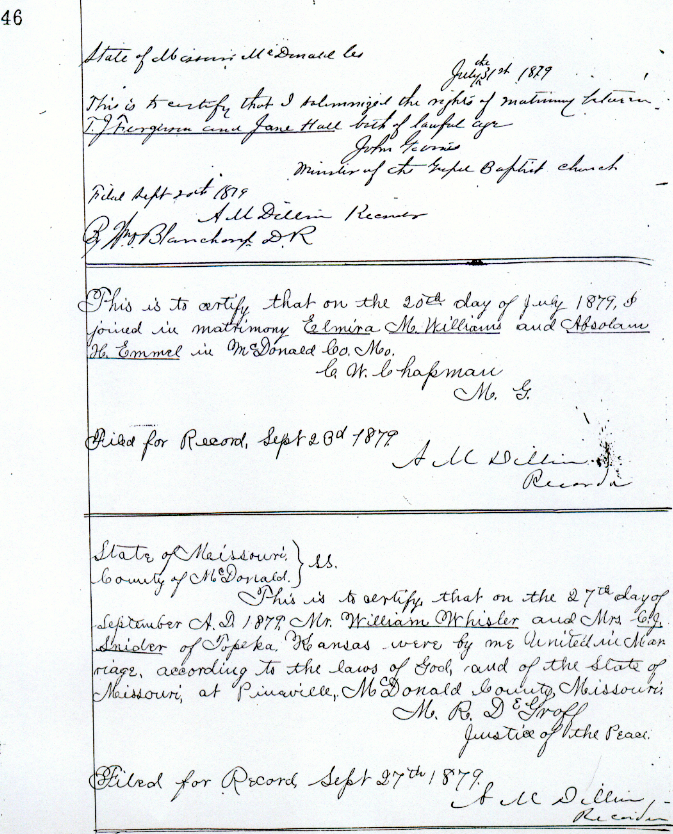 46
State of Missouri McDonald Co
July the 31st 1879
This is to certify that I solemnized the rights of matrimony between
T. J. Ferguson and Jane Hall both of lawful age
John
Minister of the Baptist church
Filed Sept 20th 1879
A M Dillin Recorder
By Wm Blanchard D. R
This is to certify that on the 20th day of July 1879, I
joined in matrimony Elmira M. Williams and Absolam
H. Emmel in McDonald Co. Mo.
C. W. Chapman
M. G.
Filed for Record, Sept 23d 1879
A M Dillin
Recorder
State of Missouri.
County of McDonald. } ss.
This is to certify, that on the 27th day of
September A.D. 1879, Mr. William Whisler and Mrs C. J.
Snider of Topeka, Kansas were by me United in Mar
riage, according to the laws of God, and of the State of
Missouri, at Pineville, McDonald County, Missouri.
M. R. DeGroff
Justice of the Peace.
Filed for Record Sept 27th 1879.
A M Dillin,
Recorder